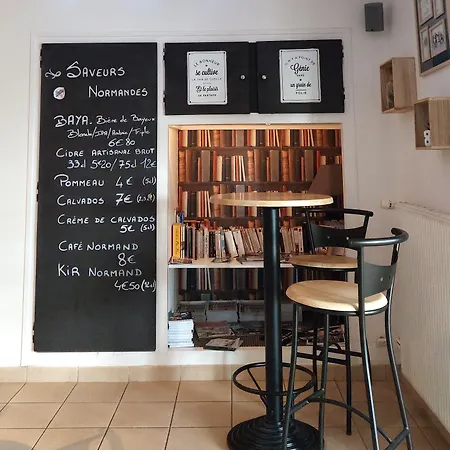 Saveurs
Normandes
BAYA. Bière de Bayeux
Blonde/IPA/Ambrée/Triple
6€80
Cidre artisanal brut
33cl 5€20/75cl 12€
Pommeau 4€ (5cl)
Calvados 7€
Crème de Calvados
5€ (5cl)
Café Normand
8€
Kir Normand
4€50
LE BONHEUR
se cultive
Et le plaisir
SE PARTAGE
Génie
SANS
un grain de
FOLIE